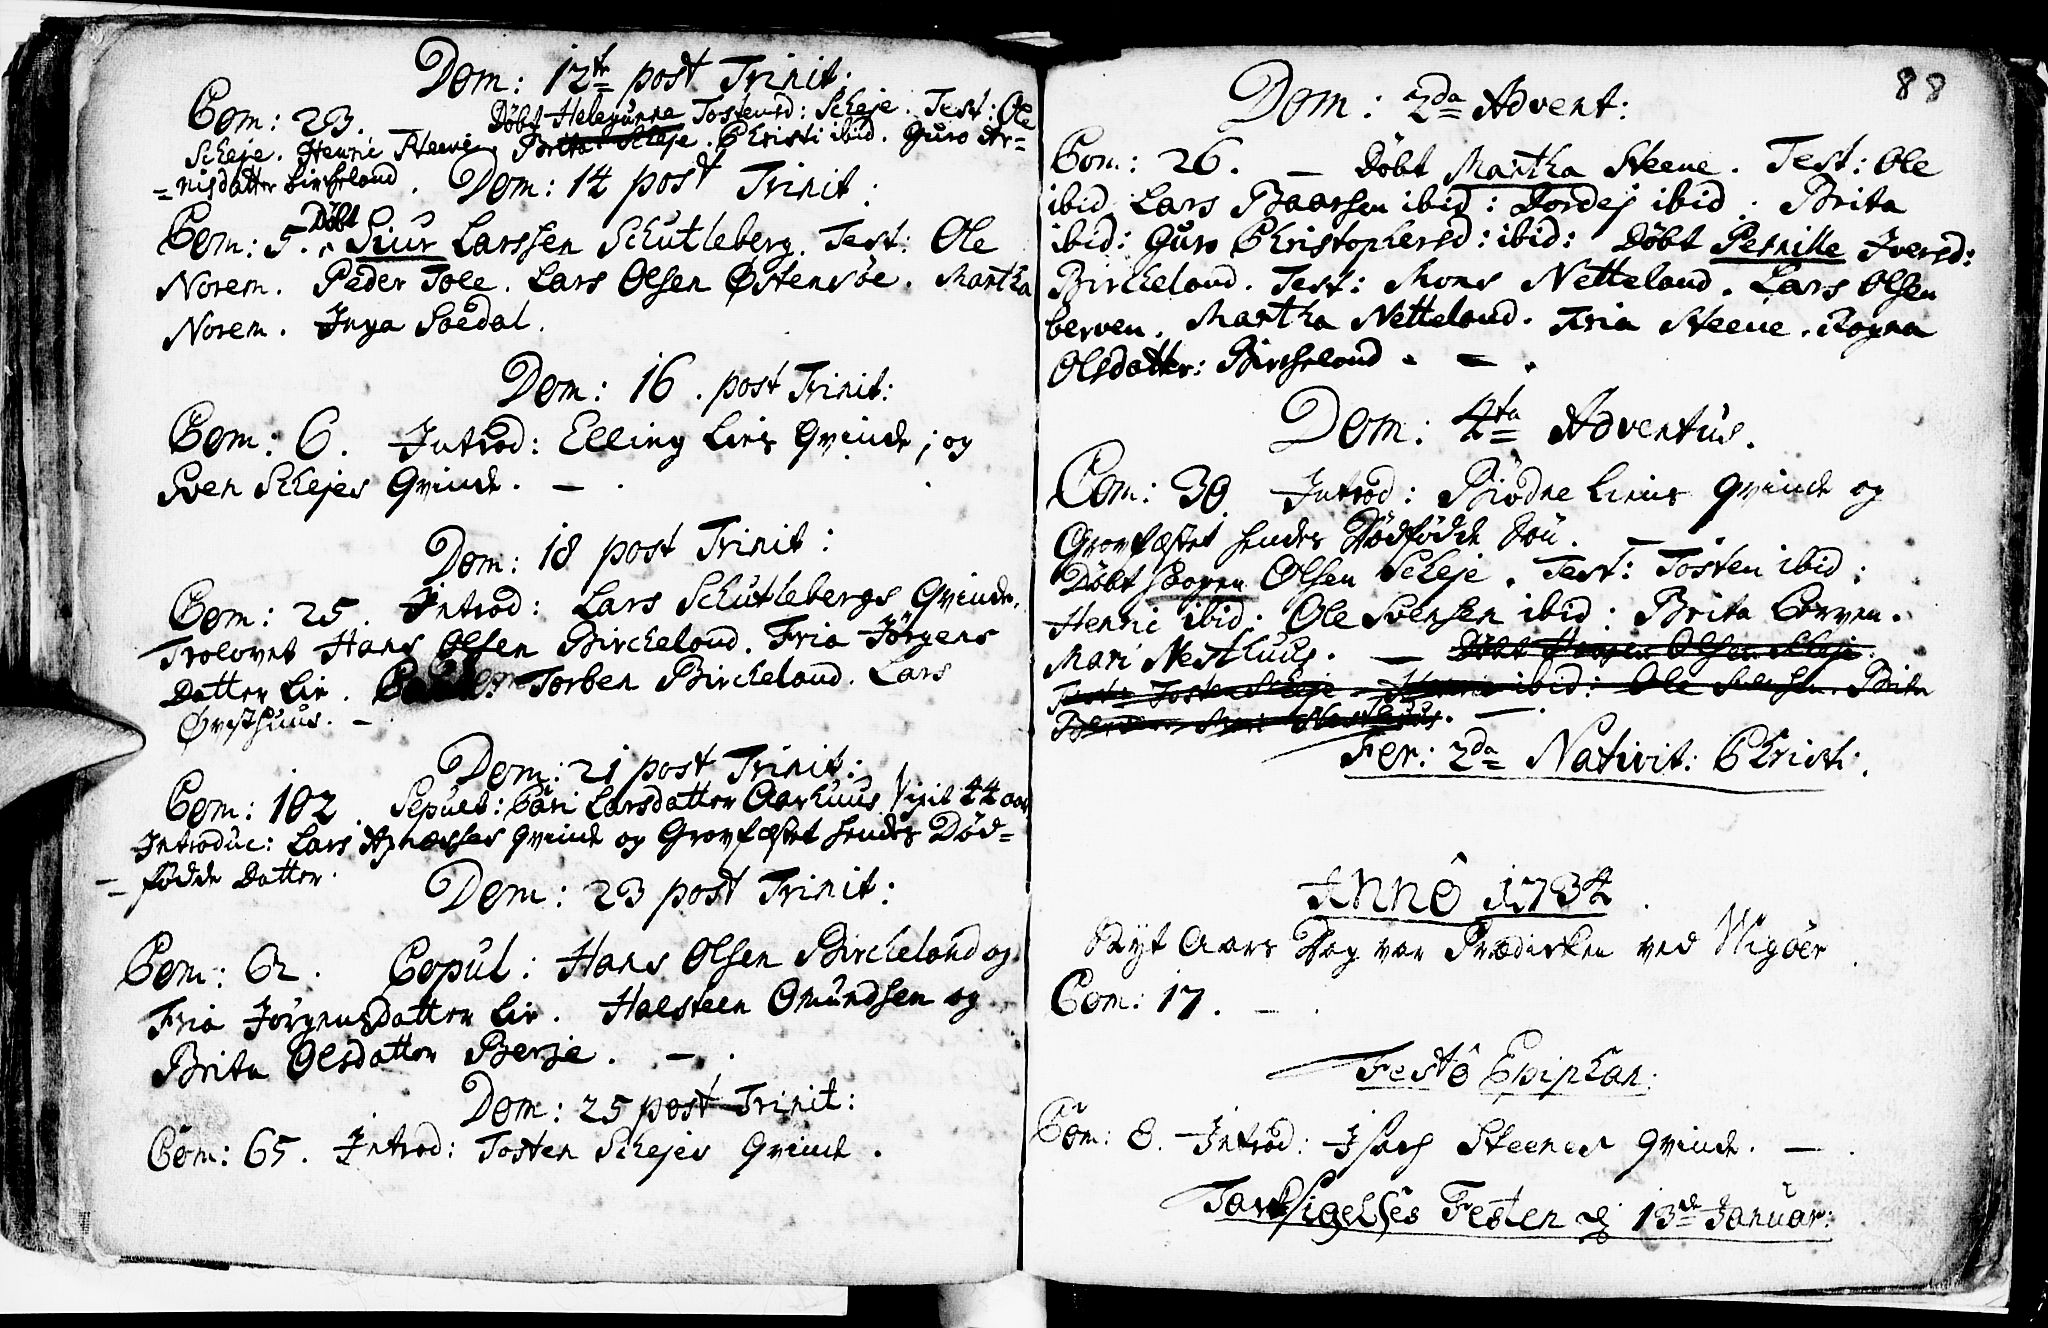 Dom: 12te post Trinit:
Com: 23. Døbt Helegunna Tostensd: Scheje. Test: Ole
Scheje. Henric Steene. Brita Scheje. Christi ibid. Guro Ar-
-nisdatter Bircheland.
Dom: 14 post Trinit:
Com: 5. Døbt Siur Larssen Schutleberg. Test: Ole
Norem. Peder Tole. Lars Olsen Østensøe. Martha
Norem. Inga Soedal.
Dom: 16. post Trinit:
Com: 6. Introd: Elling Lies Qvinde; og
Sven Schejes Qvinde. — .
Dom: 18 post Trinit:
Com: 25. Introd: Lars Schutlebergs Qvinde.
Trolovet Hans Olsen Bircheland. Fria Jörgens
Datter Lie. Torben Bircheland. Lars
Øvesthuus. —
Dom: 21 post Trinit:
Com: 102. Sepult: Cari Larsdatter Aarhuus, vixit 44 aar
Introduc: Lars Apnæsses Qvinde og Gravfæstet hendes Død-
-fødde Datter.
Dom: 23 post Trinit:
Com: 62. Copul: Hans Olsen Bircheland og
Fria Jörgensdatter Lie. Halsteen Omundsen og
Brita Olsdatter Berje. — .
Dom: 25 post Trinit:
Com: 65. Introd: Tosten Schejes Qvinde.
88
Dom: 2da Advent:
Com: 26. — Døbt Martha Steene. Test: Ole
ibid Lars Baarsen ibid: ibid. Brita
ibid: Guro Christophersd: ibid: Døbt Pernille Iversd:
Bircheland. Test: Mons Netteland. Lars Olsen
berven. Martha Netteland. Fria Steene. Ragna
Olsdatter: Bircheland. — .
Dom: 4ta Adventus.
Com: 30. Introd: Biødne Liens Qvinde og
Gravfæstet hendes Dødfødde Søn. —
Døbt Haagen Olsen Scheje. Test: Tosten ibid:
Henric ibid: Ole Svensen ibid: Brita Berven.
Mari Nesthuus. — Døbt Haagen Olsen Scheje.
Test: Tosten Scheje. Henric ibid: Ole Svensen. Brita
Berven. Mari Nesthuus. — .
Fer: 2da Nativit: Christi.
Annô 1734.
Nyt Aars Dag var Prædicken ved Vigöer.
Com: 17. — .
Festô Epiphan:
Com: 8. Introd: Isach Steenes Qvinde. — .
Tacksigelses Festen d: 13de Januar: